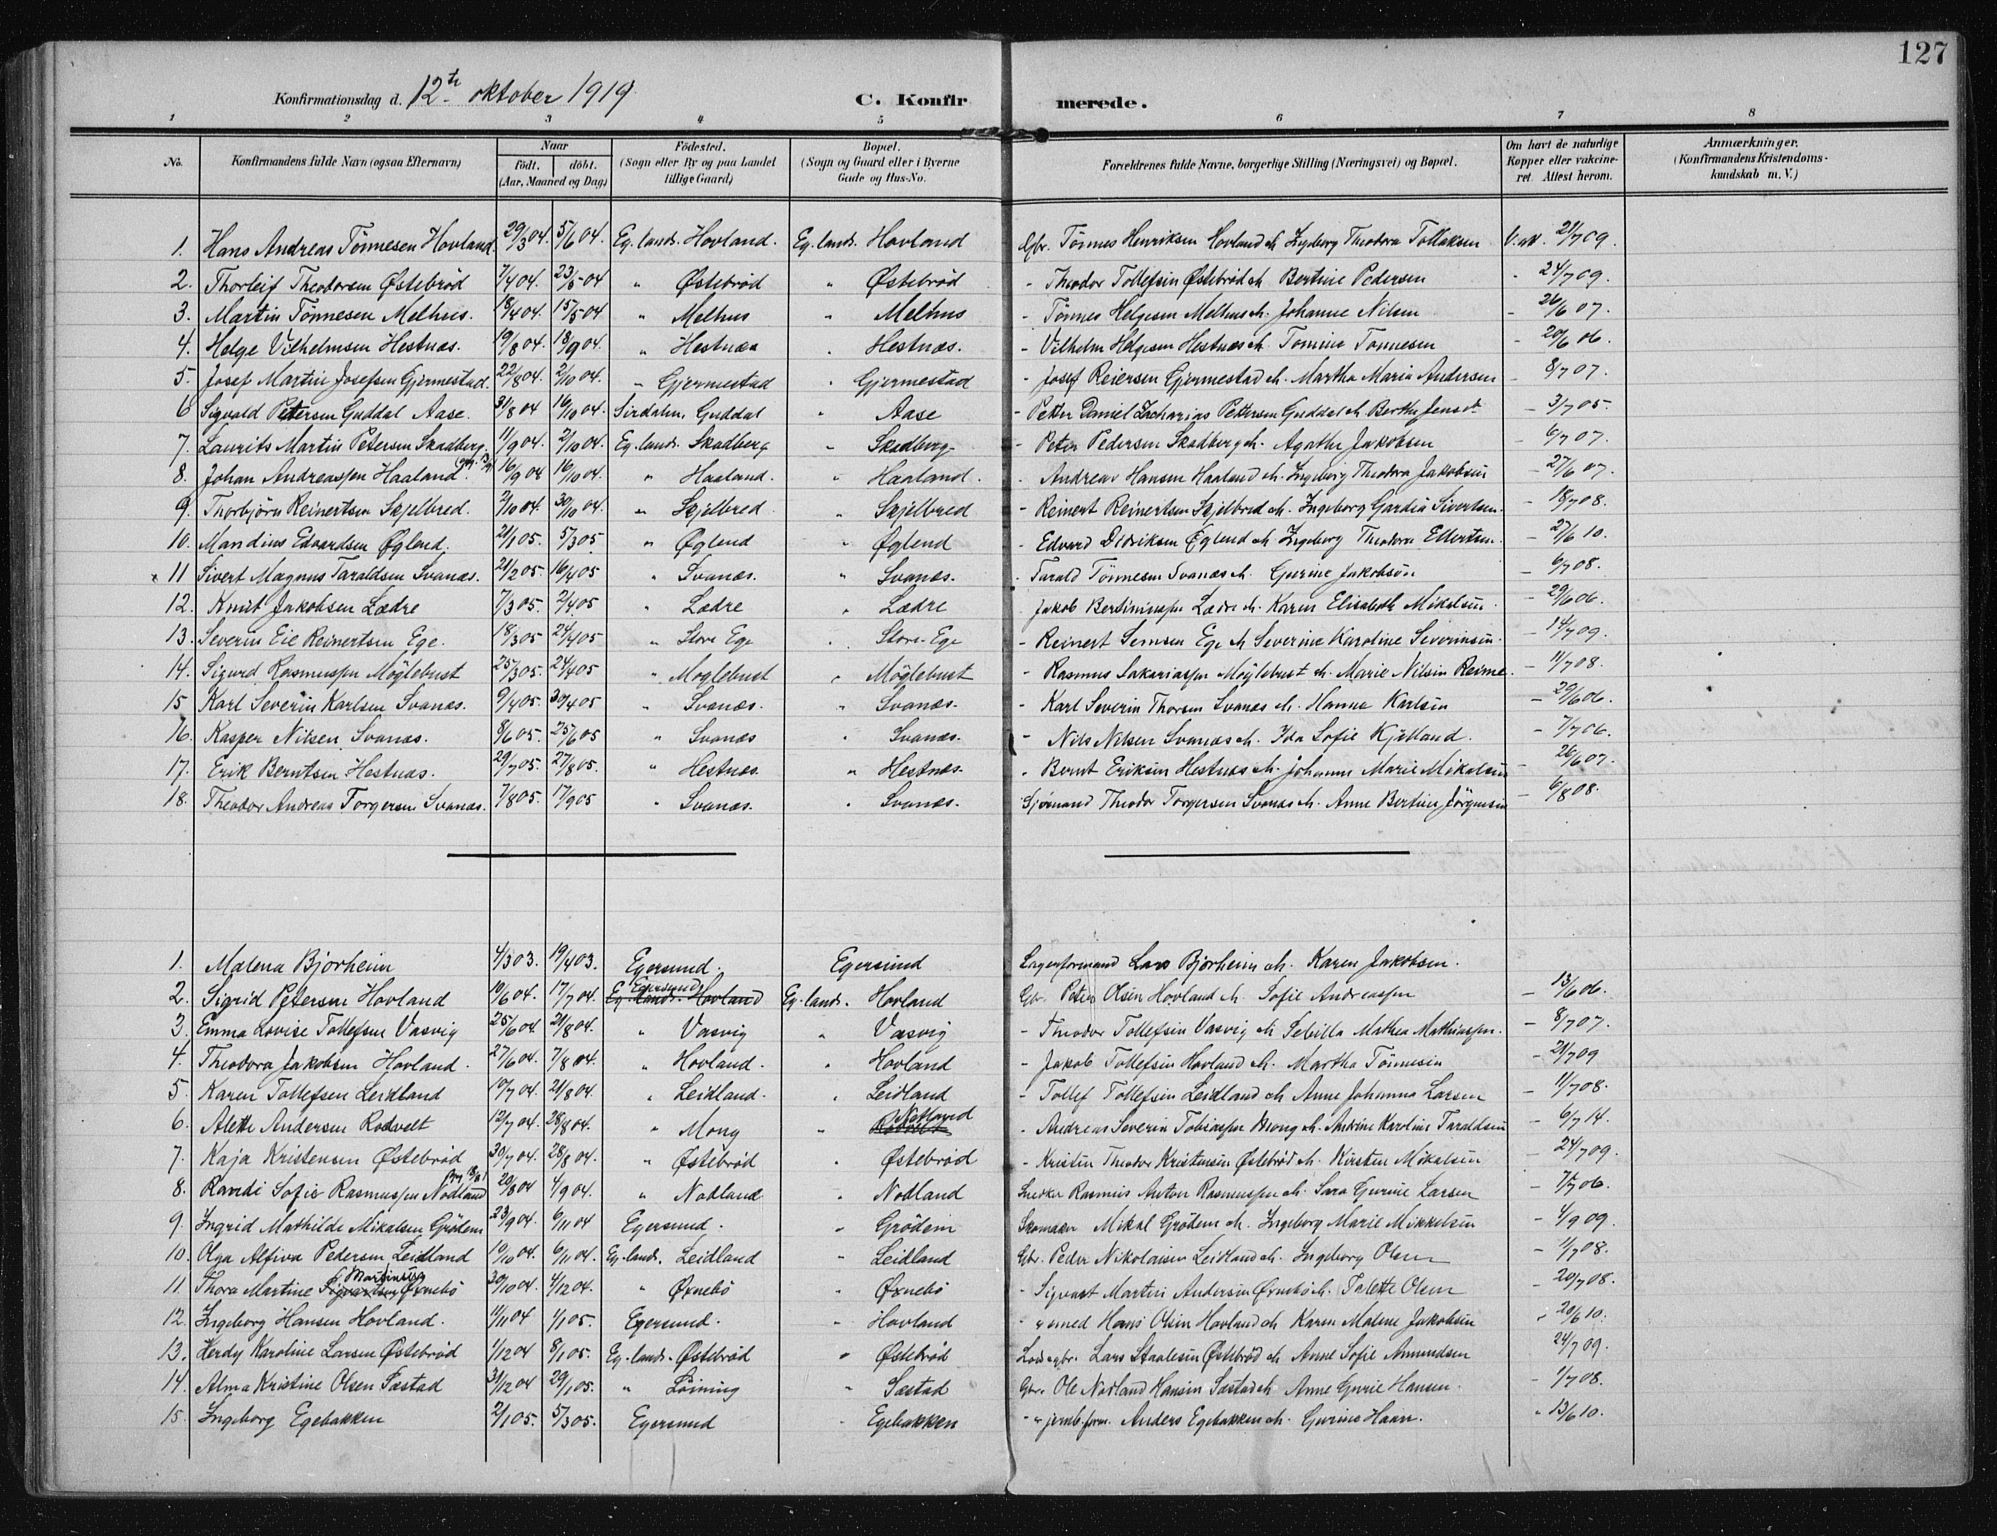 127
Konfirmationsdag d. 12te oktober 1919
C. Konfirmerede.
1 2 3 4 5 6 7 8
No. Konfirmandens fulde Navn (ogsaa Efternavn) Naar født. døbt. (Aar, Maaned og Dag) Fødested. (Sogn eller By og paa Landet tillige Gaard) Bopæl. (Sogn og Gaard eller i Byerne Gade og Hus-No. Forældrenes fulde Navne, borgerlige Stilling (Næringsvei) og Bopæl. Om havt de naturlige Kopper eller vaccineret. Attest herom. Anmærkninger. (Konfirmandens Kristendomskundskab m. V.)
1. Hans Andreas Tønnesen Hovland. 29/3 04. 5/6 04. Eg. lands. Hovland. Eg. lands. Hovland Gbr. Tønnes Henriksen Hovland & h. Ingeborg Theodora Tollaksen Vak. 21/7 09.
2. Thorleif Theodorsen Østebrød 7/4 04. 23/5 04 " Østebrød " Østebrød - Theodor Tollefsen Østebrød & h. Bertine Pedersen - 24/7 09.
3. Martin Tønnesen Melhus. 18/4 04. 15/5 04 " Melhus " Melhus - Tønnes Helgesen Melhus & h. Johanne Nilsen - 26/6 07.
4. Helge Vilhelmsen Hestnæs. 19/8 04. 18/9 04. " Hestnæs " Hestnæs. - Vilhelm Helgesen Hestnæs & h. Tomine Tønnesen - 20/6 06.
5. Josef Martin Josefsen Gjermestad. 22/8 04. 2/10 04. " Gjermestad " Gjermestad - Josef Reiersen Gjermestad & h. Martha Maria Andersen - 8/7 07.
6 Sigvald Petersen Guddal Aase. 31/8 04 16/10 04. Sirdalen Guddal " Aase - Petter Daniel Zacharias Pettersen Guddal & h. Berthe Jensd. - 3/7 05.
7. Laurits Martin Petersen Skadberg. 11/9 04. 2/10 04. Eg. lands. Skadberg " Skadberg - Peter Pedersen Skadberg & h. Agathe Jakobsen - 6/7 07.
8. Johan Andreassen Haaland. 16/9 04 16/10 04. " Haaland. " Haaland. - Andreas Hansen Haaland & h. Ingeborg Theodora Jakobsen - 27/6 07.
9. Thorbjørn Reinertsen Skjelbred. 2/10 04. 30/10 04. " Skjelbred " Skjelbred - Reinert Reinertsen Skjelbred & h. Ingeborg Gurdia Sivertsen. - 18/7 08.
10. Mandius Edvardsen Øglend. 21/1 05. 5/3 05. " Øglend " Øglend - Edvard Didriksen Øglend & h. Ingeborg Theodora Ellertsen - 27/6 10.
11 Sivert Magnus Taraldsen Svanæs. 21/2 05. 16/4 05 " Svanæs. " Svanæs. - Tarald Tønnesen Svanæs & h. Gurine Jakobsen - 6/7 08.
12. Knut Jakobsen Lædre 7/3 05. 2/4 05 " Lædre " Lædre Jakob Bertinussen Lædre & h. Karen Elisabeth Mikalsen. - 29/6 06.
13. Severin Eie Reinertsen Ege. 18/3 05. 24/4 05 " Store Ege " Store-Ege - Reinert Semsen Ege & h Severine Karoline Severinsen. - 14/7 09.
14. Sigurd Rasmussen Møglebust 25/3 05. 24/4 05 " Møglebust " Møglebust - Rasmus Sakariassen Møglebust & h. Marie Nilsen Reime. - 11/7 08.
15 Karl Severin Karlsen Svanæs. 9/4 05. 30/4 05 " Svanæs. " Svanæs. - Karl Severin Thorsen Svanæs & h. Hanna Karlsen - 29/6 06.
16. Kasper Nilsen Svanæs. 8/6 05. 25/6 05 " Svanæs " Svanæs. - Nils Nilsen Svanæs & h. Ida Sofie Kjelland. - 7/7 06.
17. Erik Berntsen Hestnæs. 29/7 05. 27/8 05. " Hestnæs. " Hestnæs. - Bernt Eriksen Hestnæs & h. Johanne Marie Mikalsen - 26/6 07.
18. Theodor Andreas Torgersen Svanæs. 7/8 05. 17/9 05 " Svanæs. " Svanæs. Sjømand Theodor Torgersen Svanæs & h. Anne Bertine Jörgensen - 6/8 08.
1. Malena Bjorheim 4/3 03. 19/4 03. Egersund. Egersund Lagerformand Lars Bjorheim & h. Karen Jakobsen.
2. Sigrid Petersen Hovland 19/6 04. 17/7 04. Egersund Eg. lands. Hovland Eg. lands. Hovland Gbr. Peter Olsen Hovland & h. Sofie Andreassen - 13/6 06.
3. Emma Lovise Tollefsen Vasvig 25/6 04 21/8 04. " Vasvig " Vasvig - Theodor Tollefsen Vasvig & h Sebilla Mathea Mathiassen. - 8/7 07.
4. Theodora Jakobsen Hovland. 27/6 04. 7/8 04. " Hovland. " Hovland - Jakob Tollefsen Hovland & h. Martha Tønnesen - 21/7 09
5. Karen Tollefsen Leidland 19/7 04. 21/8 04. " Leidland. " Leidland - Tollef Tollefsen Leidland & h. Anne Johanna Larsen - 11/7 08.
6. Alette Andersen Rodvelt 12/7 04. 28/8 04. " Mong " Netland - Andreas Severin Tobiassen Mong & h. Andrine Karoline Taraldsen - 6/7 14.
7. Kaja Kristensen Østebrød 30/7 04. 28/8 04. " Østebrød " Østebrød - Kristen Theodor Kristensen Østebrød & h. Kirsten Mikalsen - 24/7 09.
8. Randi Sofie Rasmussen Nodland 20/8 04 4/9 04. " Nodland " Nodland Snekker Rasmus Anton Rasmussen & h. Sara Gurine Larsen - 7/7 06.
9. Ingrid Mathilde Mikalsen Grødem 23/9 04. 6/11 04 Egersund. " Grødem Skomager Mikal Grødem & h. Ingeborg Marie Mikkelsen - 4/9 09.
10. Olga Alfiva Pedersen Leidland 19/10 04. 6/11 04. Eg. lands. Leidland " Leidland Gbr. Peder Nikolaisen Leidland & h. Ingeborg Olsen - 11/7 08.
11. Thora Martine Sigvartsen Martinsen Øxnebø 30/10 04. 4/12 04. " Øxnebø " Øxnebø - Sigvart Martin Andersen Øxnebø & h. Talette Olsen - 20/7 08.
12. Ingeborg Hansen Hovland. 11/11 04 1/1 05. Egersund. " Hovland - smed Hans Olsen Hovland & h. Karen Malene Jakobsen " 20/6 10.
13. Herdy Karoline Larsen Østebrød 1/12 04 8/1 05. Eg-lands. Østebrød " Østebrød Lods & gbr. Lars Staalesen Østebrød & h. Anne Sofie Amundsen 24/7 09.
14. Alma Kristine Olsen Sæstad 31/12 04 29/1 05. " Löining " Sæstad Gbr. Ole Nodland Hansen Sæstad & h. Anne Gurie Hansen. - 1/7 08.
15. Ingeborg Egebakken 2/1 05. 5/3 05. Egersund " Egebakken - " jernb. form. Anders Egebakken & h. Gurine Haar. " 13/6 10.